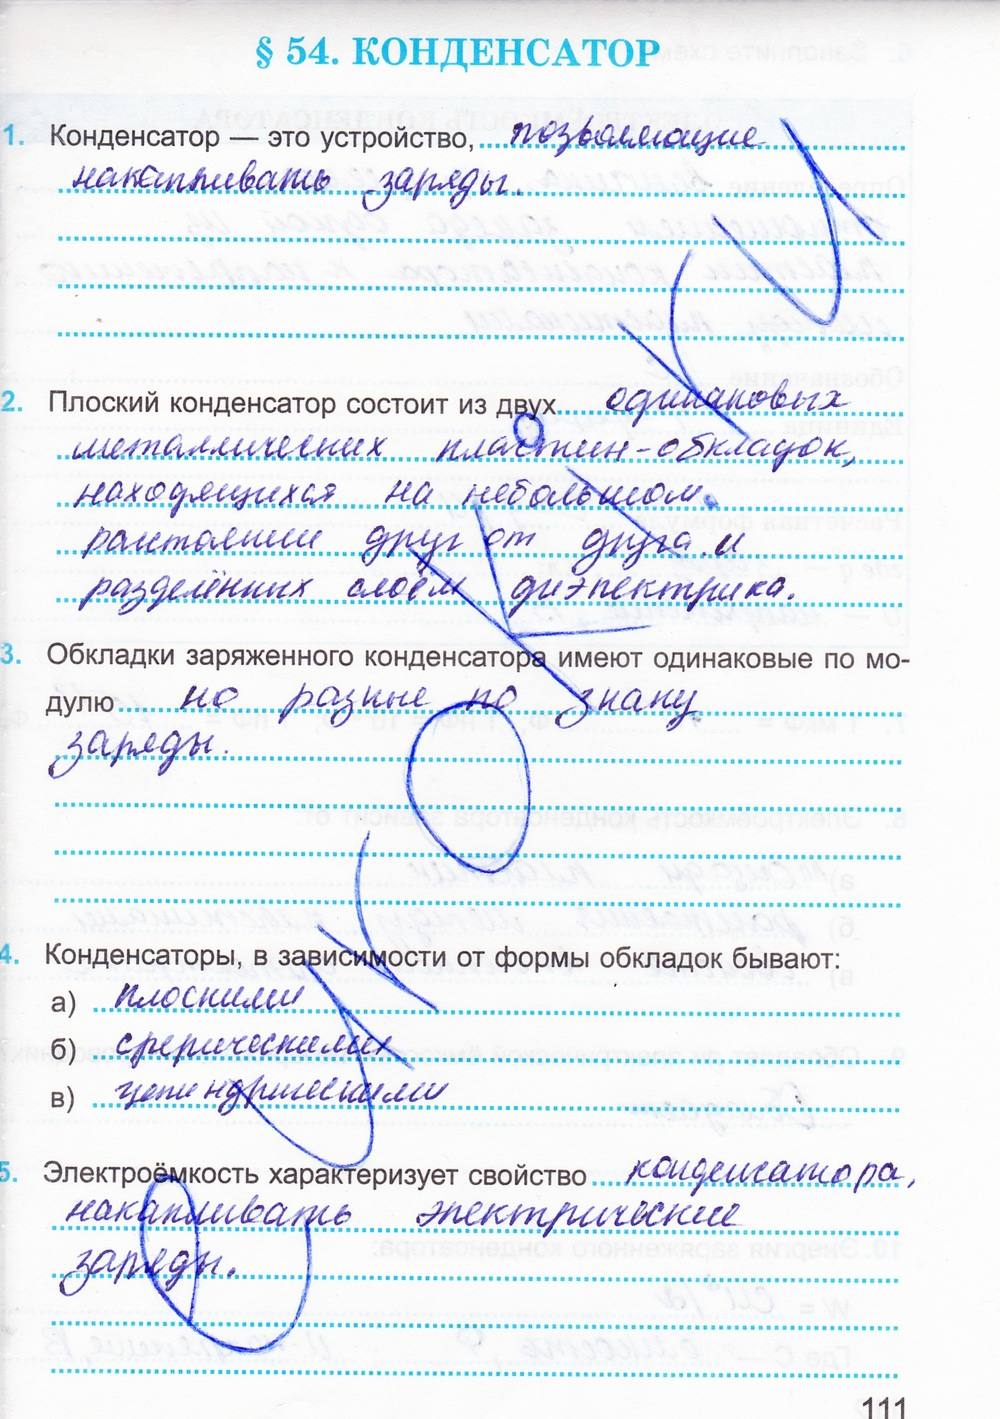 § 54. КОНДЕНСАТОР
1. Конденсатор — это устройство, позволяющие
накапливать заряды.
2. Плоский конденсатор состоит из двух одинаковых
металлических пластин-обкладок,
находящихся на небольшом
расстоянии друг от друга и
разделённых слоем диэлектрика.
3. Обкладки заряженного конденсатора имеют одинаковые по мо-
дулю но разные по знаку
заряды.
4. Конденсаторы, в зависимости от формы обкладок бывают:
а) плоскими
б) сферическими
в) цилиндрическими
5. Электроёмкость характеризует свойство конденсатора,
накапливать электрические
заряды.
111